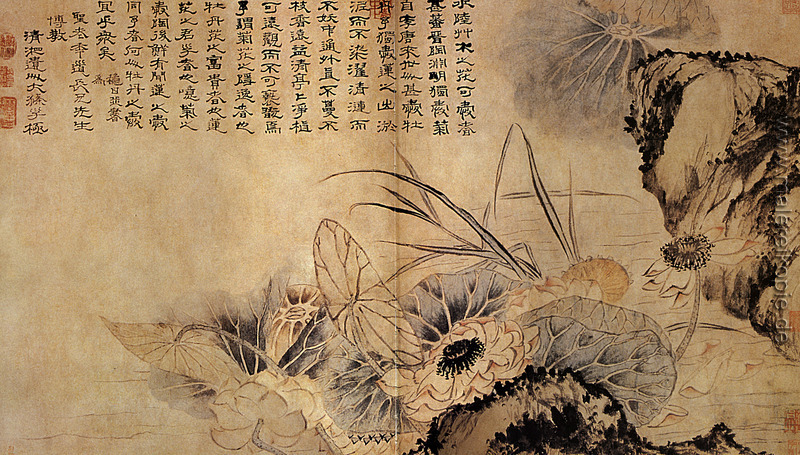 水陸艸木之花可愛者
甚蕃晉陶淵明獨愛菊
自李唐來世人甚愛牡
丹予獨愛蓮之出淤
泥而不染濯清漣而
不妖中通外直不蔓不
枝香遠益清亭亭淨植
可遠觀而不可褻翫焉
予謂菊花之隱逸者也
牡丹花之富貴者也蓮
花之君子者也噫菊之
愛陶後鮮有聞蓮之愛
同予者何人牡丹之愛
宜乎眾矣
聖老李道長兄先生
博教
清湘遺人大滌子極